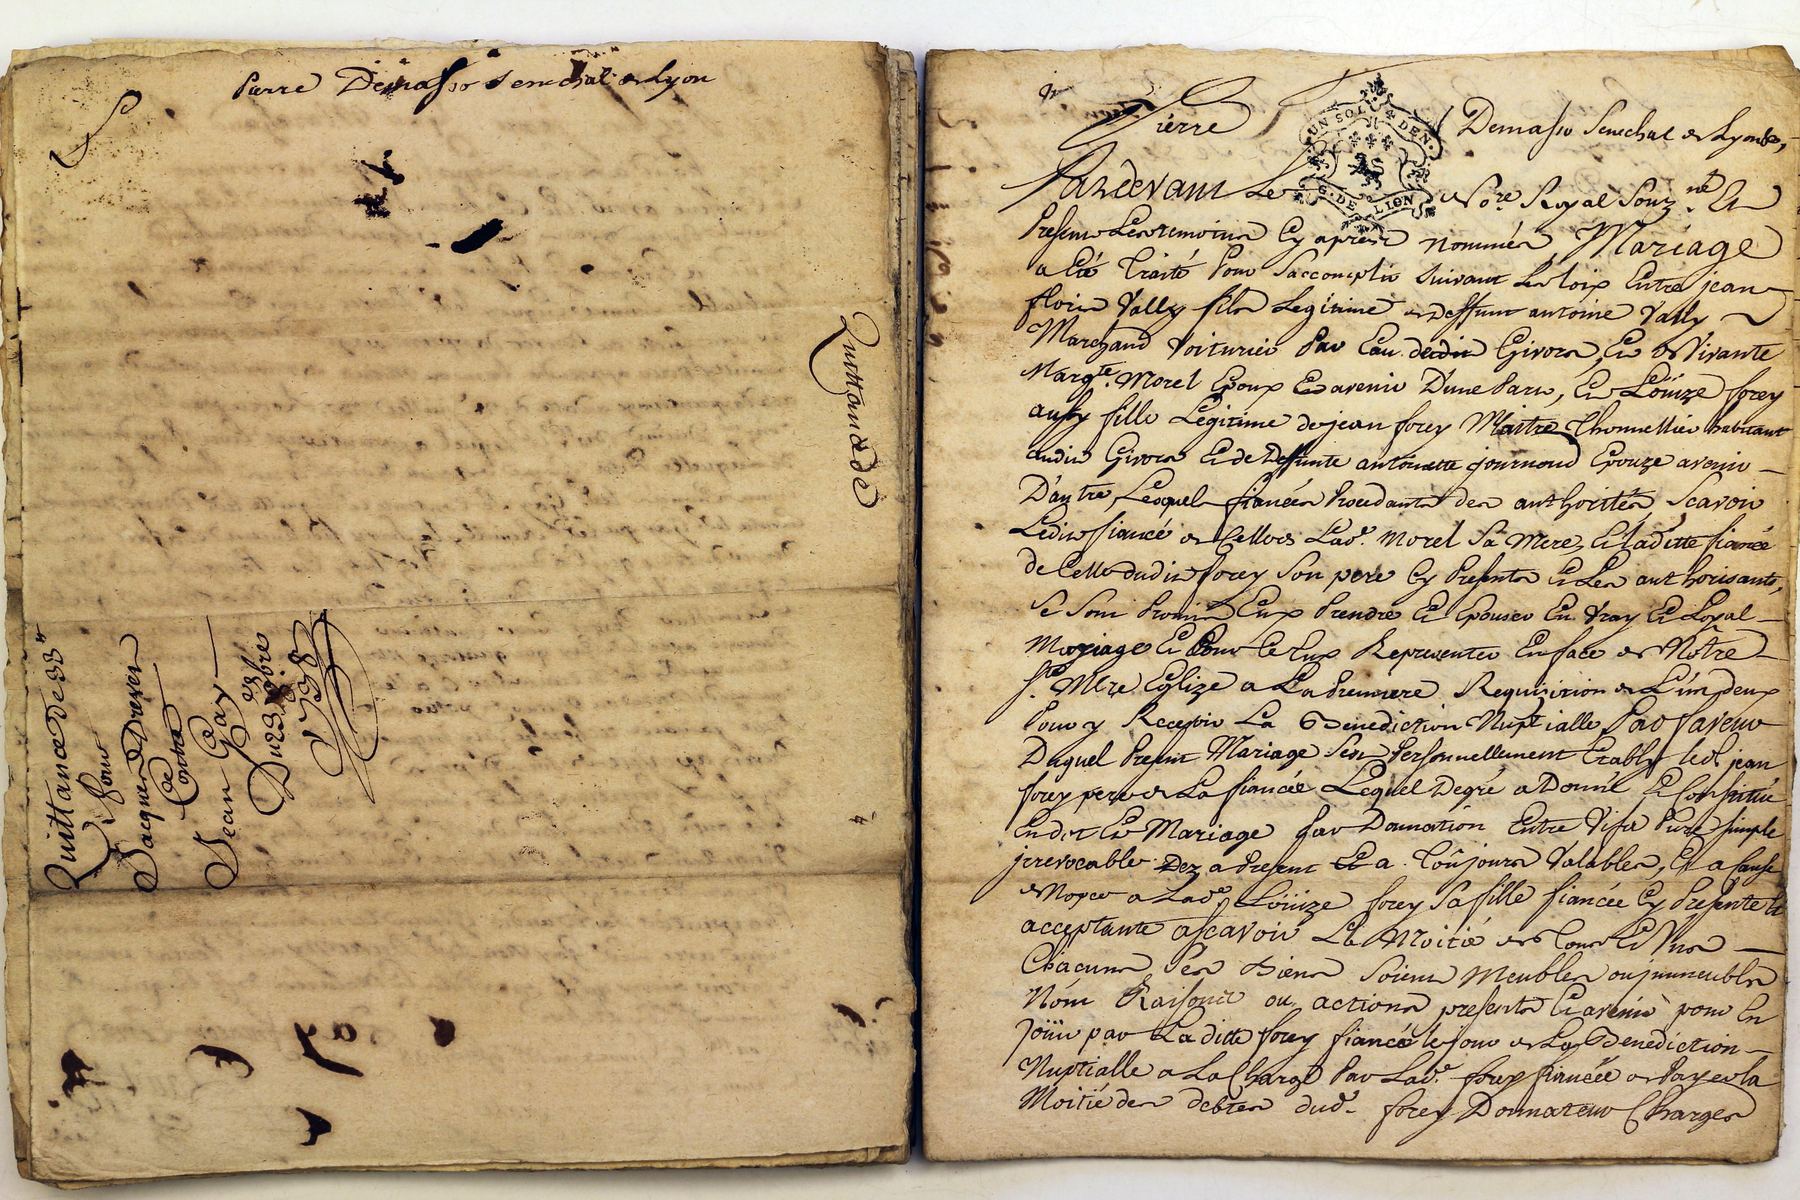 Pierre Demasso Senechal de Lyon
Quittance de
Quittance de 33ᵗᵗ
Pour
Jacques Dreven
Contre
Jean Gay
Du 23 xbre
1738
Pierre Demasso Senechal de Lyon
UN SOL DEN
G. DE LION
Pardevant Le Nore Royal Souz.né Et
Presents Les temoins Cy aprest nommés, Mariage
a Eté traité Pour Saccomplir Suivant Les loix Entre jean
floris Vally fils Legitime de deffunt antoine Vally
Marchand Voiturier Par Eau dudit Givors, Et de Vivante
Margte. Morel Epoux a avenir D'une Part, Et Loüize forey
aussy fille Legitime de jean forey Maitre Thonnellier habitant
audit Givors Et de Deffunte antoinette journoud Epouze avenir
D'autre, Lesquels fiancés Procedants des authorités, Scavoir
Ledit fiancé de Celle de Lade. Morel Sa Mere, Et laditte fiancé
de Celle dudit forey Son pere Cy Presents Et Les authorisants,
Se Sont Promis Eux Prendre Et Epouser En Vray Et Loyal
Mariage Et Pour Ce Eux Representer En face de Notre
Ste. Mere Eglize a La Premiere Requizition de L'un deux
Pour y Recepvoir La Benediction Nuptialle, Par faveur
Duquel Present Mariage S'est Personnellement Etably led. jean
forey pere de La fiancée Lequel De gré a Donné, Et Constitué
En dot Et Mariage Par Donnation Entre Vifs Pure Simple
jrrevocable Dez a Present Et a Toûjours Valables, Et a Cause
de Nopce a Lade. Loüize forey Sa fille fiancée Cy Presente Et
acceptante ascavoir La Moitié de Tous Et Uns
Chacuns Ses Biens Soient Meubles ou jmmeubles
Nom Raisons ou actions presents Et avenir pour En
Joüir par Laditte forey fiancée le jour de La Benediction
Nuptialle a La Charge Par Lade. forey fiancée de Payer la
Moitié des debtes dud. forey Donnateur Charges